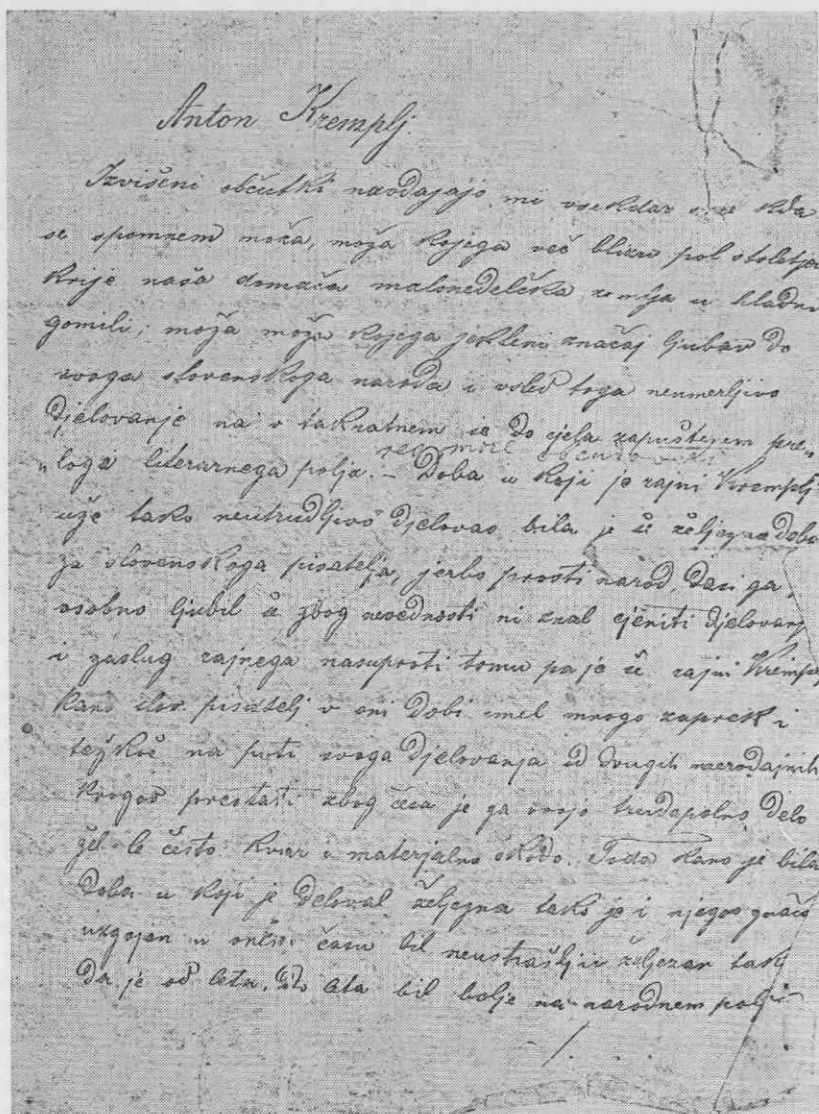 Anton Kremplj.
Izvišeni občutki navdajajo mi vsekdar kda
se spomnem moža, moža kojega več blizu pol stoletja
krije naša domača malonedelska zemlja u hladni
gomili; moža moža kojega jekleni značaj ljubav do
svoga slovenskoga naroda i vsled toga neumerljivo
djelovanje na v takratnem še do cjela zapuštenem pre-
"logi literarnega polja. – Doba u koji je rajni Kremplj
uže tako neutrudljivo djelovao bila je še željezna doba
za slovenskoga pisatelja, jerbo prosti narod, dasi ga
osobno ljubil še zbog nevednosti ni znal cjeniti djelovanj
i zaslug rajnega nasuproti tomu pa je še rajni Kremplj
kano slov. pisatelj v oni dobi imel mnogo zaprek i
težkoč na puti svoga djelovanja od drugih merodajnih
krogov prestati zbog česa je za svoje trudapolno delo
žel le često kvar i materjalno škodo. Toda kano je bila
doba u koji je deloval željezna tako je i njegov značaj
uzgojen u času bil neustrašljiv željezan tak
da je od leta do leta bil bolje na narodnem polji
/. . .